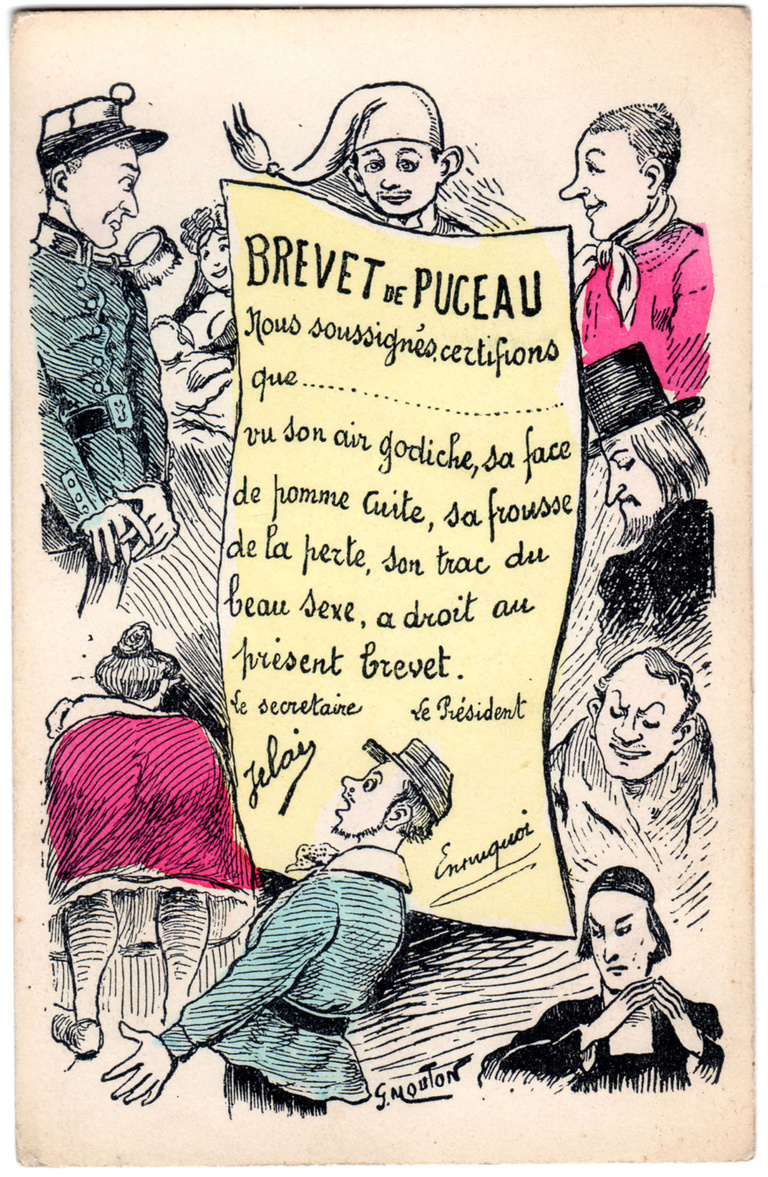 BREVET DE PUCEAU
Nous soussignés, certifions
que......................................
vu son air godiche, sa face
de pomme cuite, sa frousse
de la perte, son trac du
beau sexe, a droit au
présent brevet.
Le secretaire Le Président
Jelai
Enrruquoi
G. MOUTON